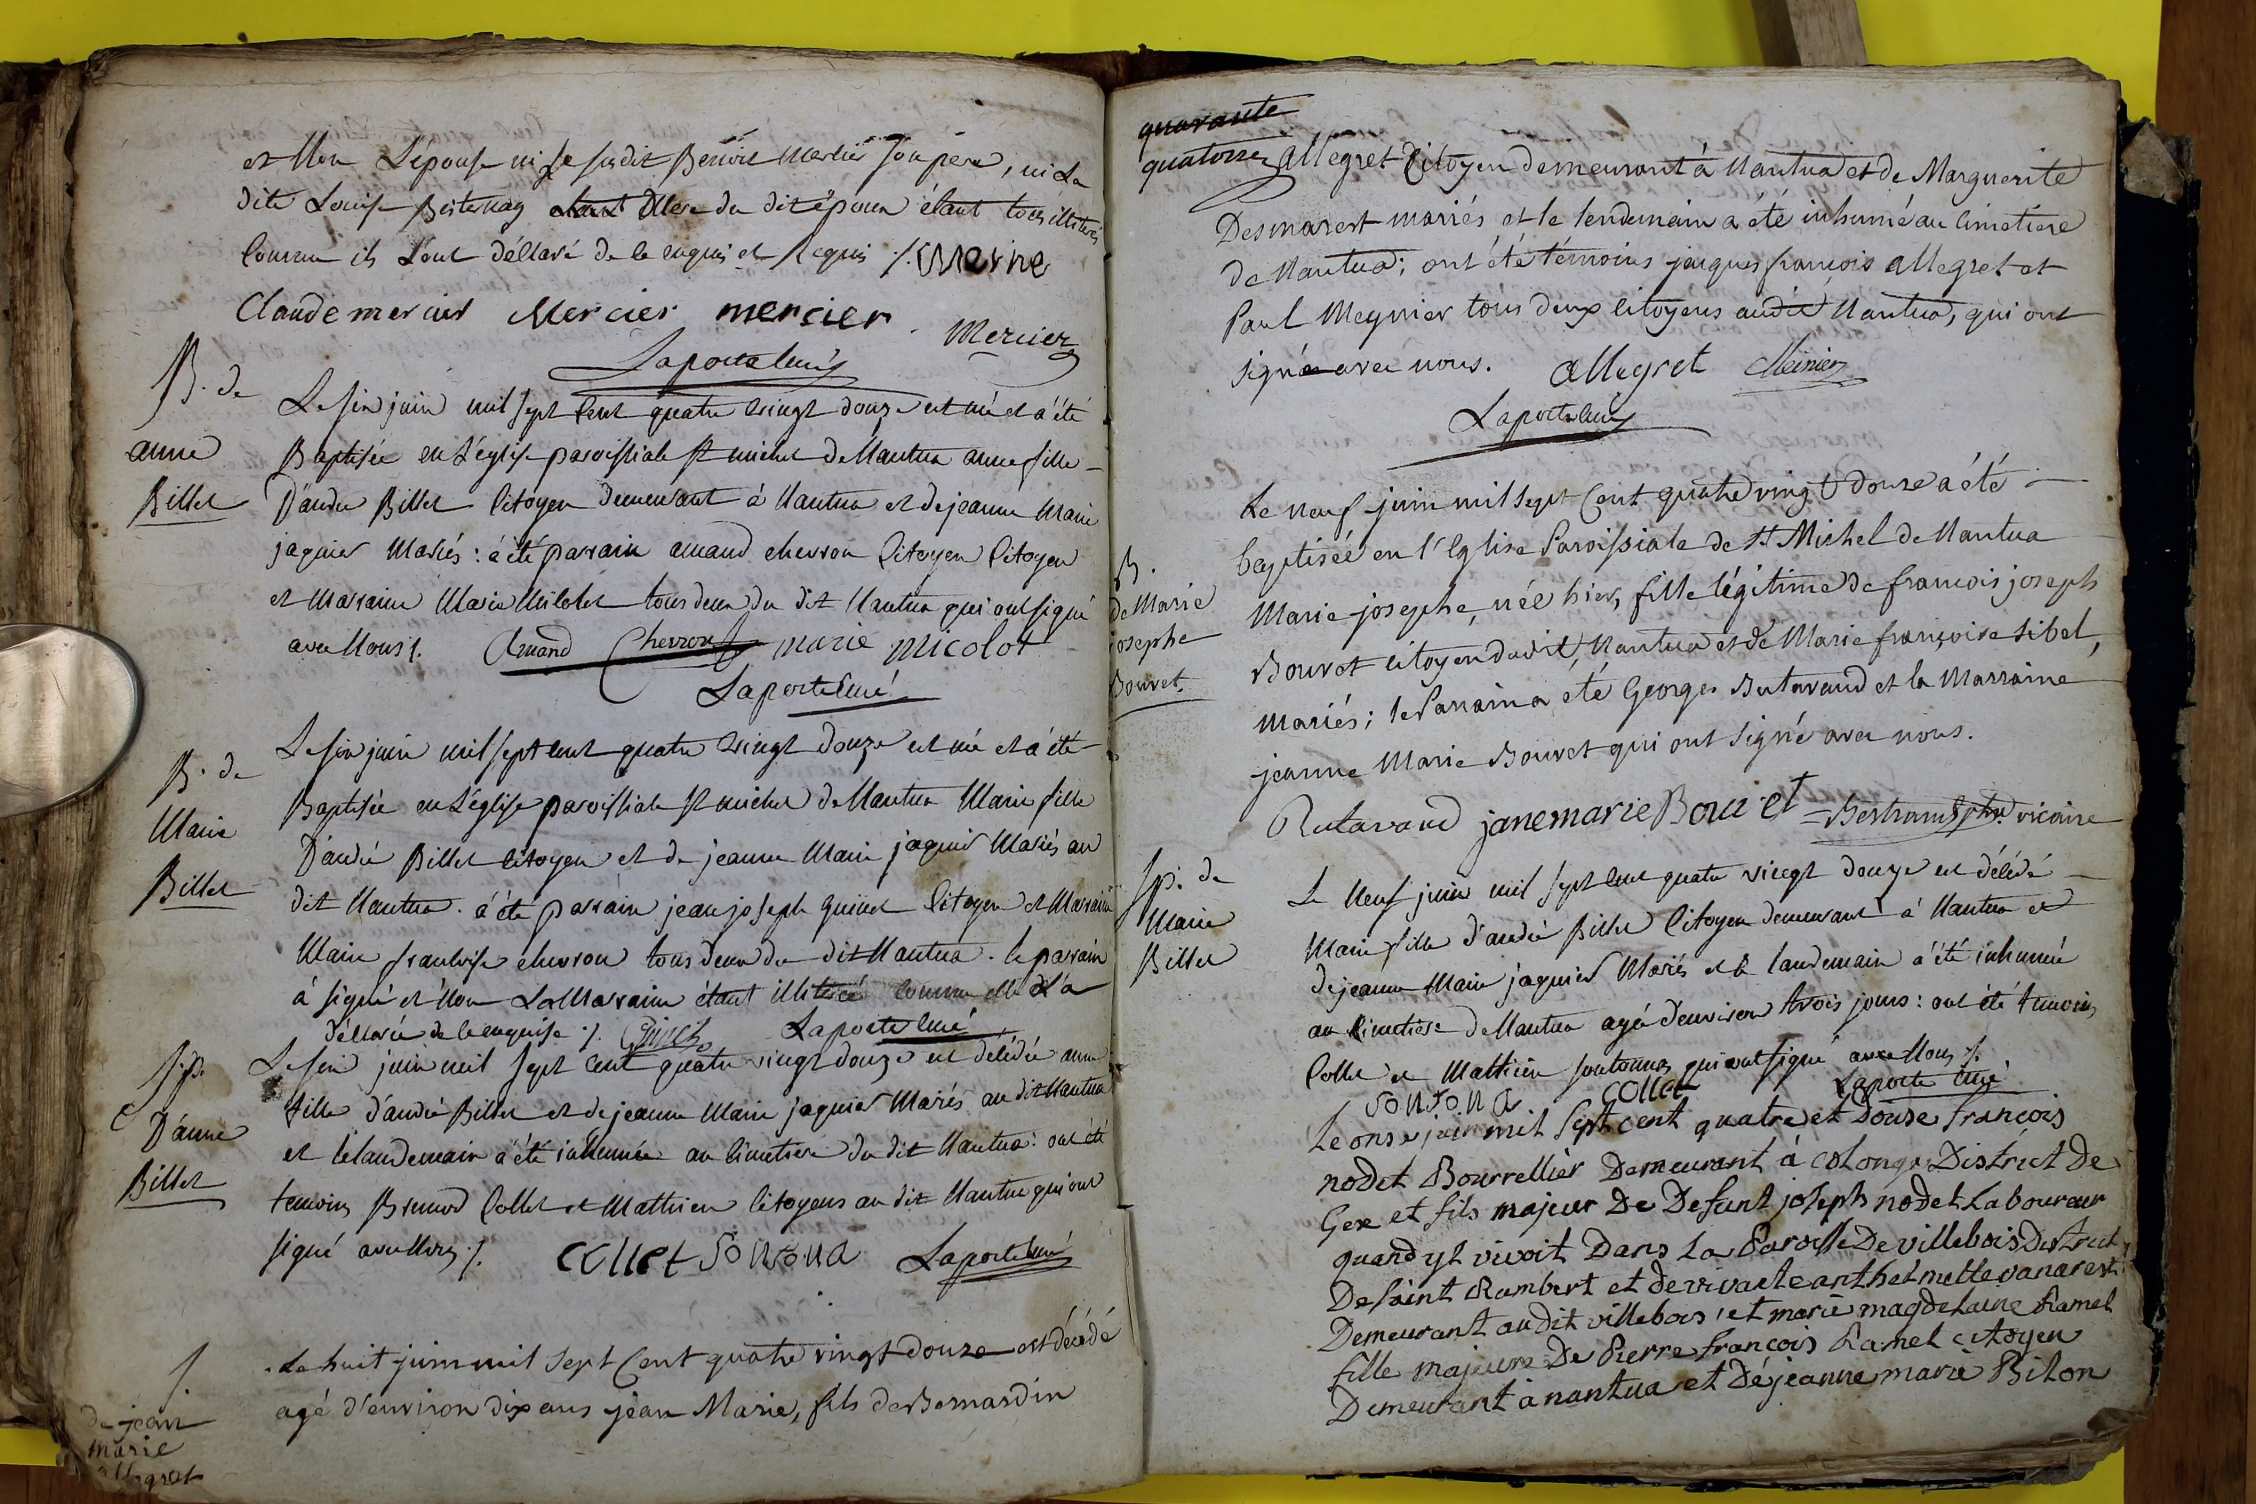 et Non L'épouse ni le susdit Benoit Mercier son père, ni la
dite Louise Bertenay Mere du dit époux étant tous illiterés
comme ils l'ont déllaré de ce enquis et requis ./. Merine
Claude mercier Mercier mercier Mercier
Laporte curé
B. de
anne
Billet
Le six juin mil sept cent quatre vingt douze est né et a été
Baptisée en L'église paroissiale st michel de Nantua anne fille
D'andré Billet Citoyen demeurant à Nantua et de jeanne Marie
jaquier Mariés : a été parrain amand chevron Citoyen Citoyen
et Marraine Marie Micolot tous deux du dit Nantua qui ont signé
avec Nous ./. Amand Chevron marie micolot
Laporte curé
B. de
Marie
Billet
Le six juin mil sept cent quatre vingt douze est né et a été
Baptisée en L'église paroissiale st michel de Nantua Marie fille
D'andré Billet citoyen et de jeanne Marie jaquier Mariés au
dit Nantua. a été parrain jean joseph guinet Citoyen et Marraine
Marie francoise chevron tous deux du dit Nantua. le parrain
à signé et Non La Marraine étant illiterée comme elle L'a
déllarée de ce enquise ./. Guinet Laporte curé
Sp.
D'anne
Billet
Le six juin mil sept cent quatre vingt douze est décédée anne
fille d'andré Billet et de jeanne Marie jaquier Mariés au dit Nantua
et le landemain a été inhumée au Cimetiere du dit Nantua : ont été
temoins Bernard Collet et Mathieu Citoyens au dit Nantua qui ont
signé avec Nous ./. collet Sonsona Laporte curé
S.
de jean
marie
allegret
Le huit juin mil sept Cent quatre vingt douze est décédé
agé d'environ dix ans jean Marie, fils de Bernardin
quarante
quatorze
allegret Citoyen demeurant à Nantua et de Marguerite
Desmarest mariés et le lendemain a été inhumé au Cimetiere
de Nantua ; ont été témoins jacques françois allegret et
Paul Meynier tous deux citoyens audit Nantua, qui ont
signé avec nous. allegret Meinier
Laporte curé
B.
de Marie
josephe
Bouvet
Le neuf juin mil sept Cent quatre vingt douze a été
baptisée en l'Eglise Paroissiale de St Michel de Nantua
Marie josephe, née hier, fille légitime de francois joseph
Bouvet citoyen dudit Nantua et de Marie françoise Sibel,
mariés ; le Parrain a eté Georges Butavand et la Marraine
jeanne Marie Bouvet qui ont signé avec nous.
Butavand jane marie Bouvet Bertrand ptre vicaire
Sp. de
Marie
Billet
Le Neuf juin mil sept cent quatre vingt douze est délédé
Marie fille d'andré Billet Citoyen demeurant à Nantua et
de jeanne Marie jaquier Mariés et le landemain a été inhumée
au Cimetière de Nantua agé d'environ trois jours : ont été temoins
Collet et Matthieu sontonna qui ont signé avec Nous ./.
sonsona collet Laporte curé
Le onse juin mil sept cent quatre et douse francois
nodet Bourrellier Demeurant à Colonge District De
Gex et fils majeur De Defunt joseph nodet Laboureur
quand yl vivoit Dans La Paroisse De villebois District
De saint Rambert et de vivante anthelmette vanarest
Demeurant audit villebois, et marie magdelaine Ramel
fille majeure De Pierre francois Ramel citoyen
Demeurant à nantua et De jeanne marie Bilon